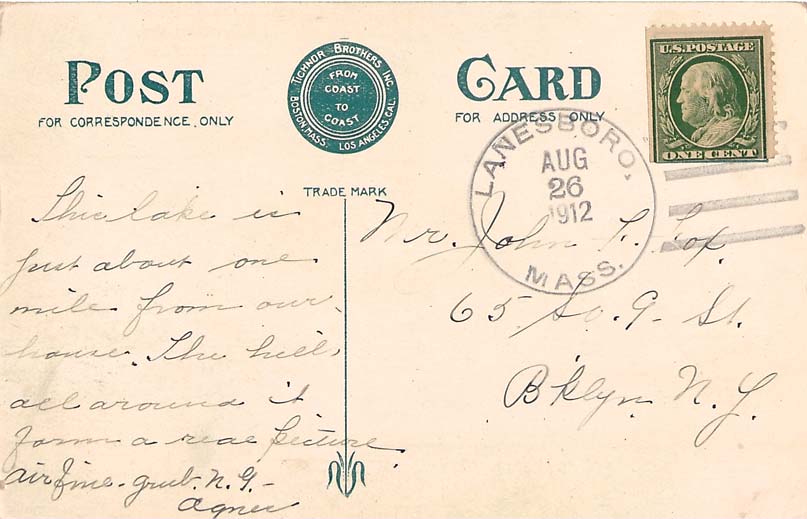 POST CARD
FOR CORRESPONDENCE ONLY
FOR ADDRESS ONLY
TICHNOR BROTHERS, INC.
BOSTON, MASS. LOS ANGELES, CAL.
FROM
COAST
TO
COAST
TRADE MARK
U.S. POSTAGE
ONE CENT
LANESBORO,
AUG
26
1912
MASS.
This lake is
just about one
mile from our
house. The hills
all around it
form a real picture.
air fine - grub. N.G. -
Agnes
Mr. John F. Fox
65 So. 9 - St.
Bklyn N.Y.